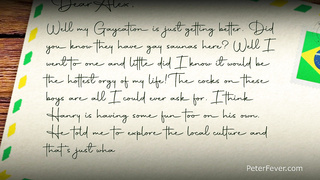 Dear Alex,
Well my Gaycation is just getting better. Did
you know they have gay saunas here? Well I
went to one and little did I know it would be
the hottest orgy of my life! The cocks on these
boys are all I could ever ask for. I think
Hanry is having some fun too on his own.
He told me to explore the local culture and
that's just wha
PeterFever.com